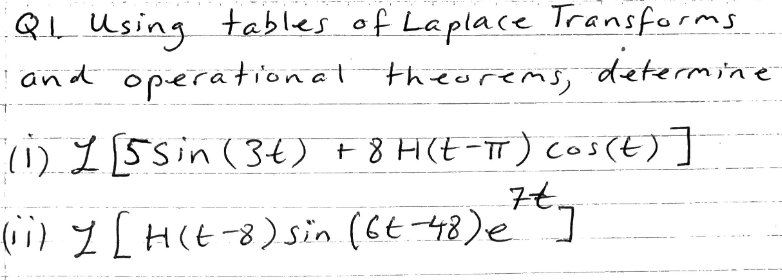 Q1 Using tables of Laplace Transforms
and operational theorems, determine
(i) ℒ [5 Sin (3t) + 8 H(t-π) cos(t)]
(ii) ℒ [H(t-8) sin (6t-48) e^{7t}]